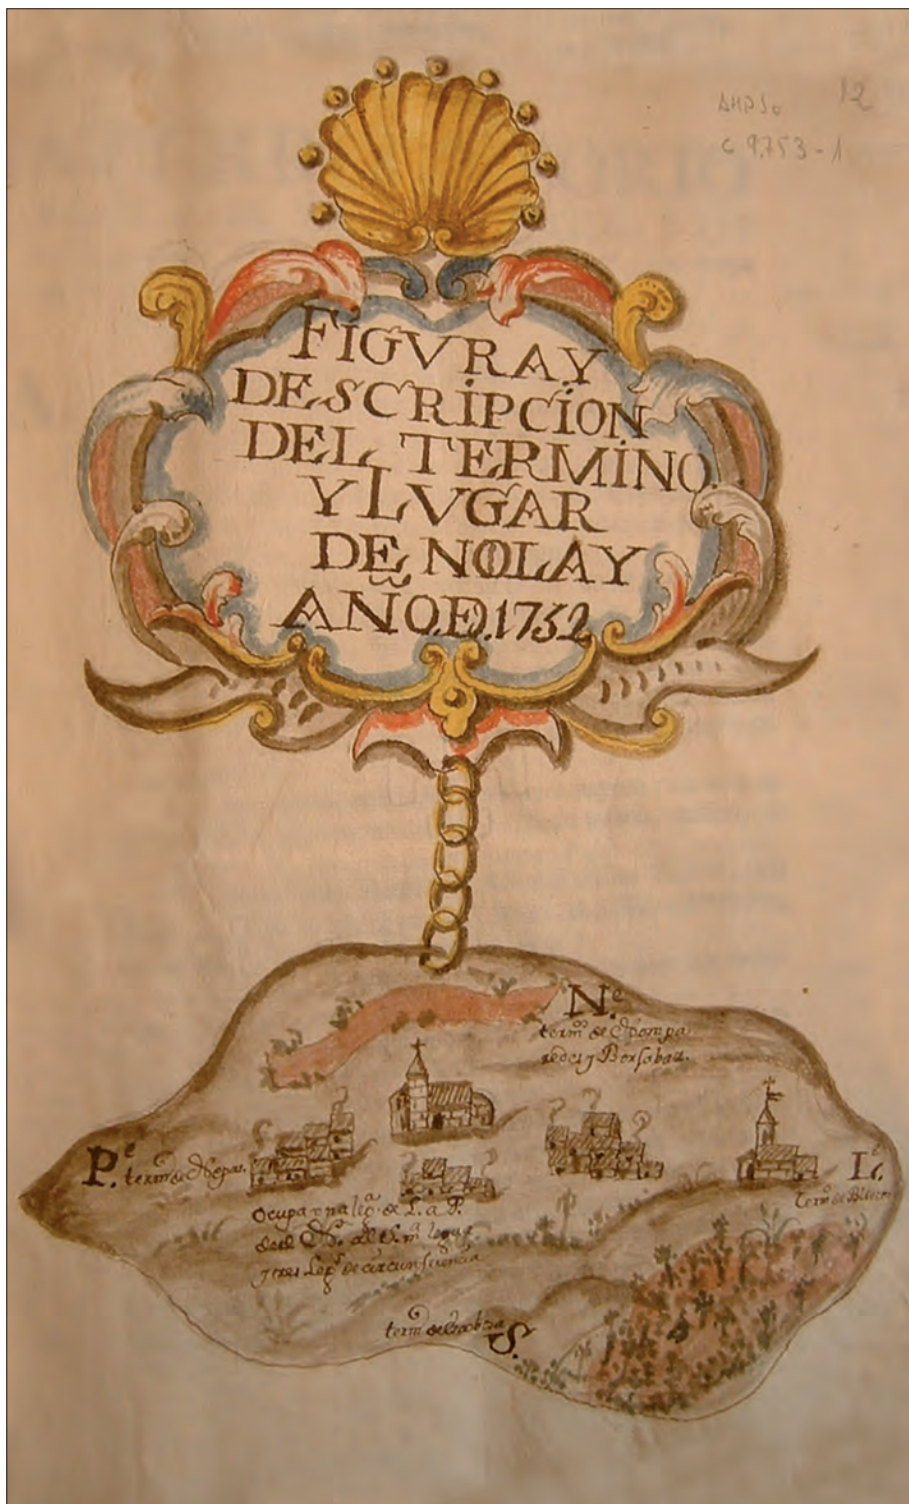 AHPSo 12
C 9.753-1
FIGVRA Y
DESCRIPCION
DEL TERMINO
Y LVGAR
DE NOLAY
AÑO. D. 1752
N.e
termo de Nompa
redes y Borjabad.
P.e termo de Nepas.
L.e
termo de
Ocupa una lega. de L. a P.
del N. al S. ma. legua
y tres legs. de circunferencia
termo de S.